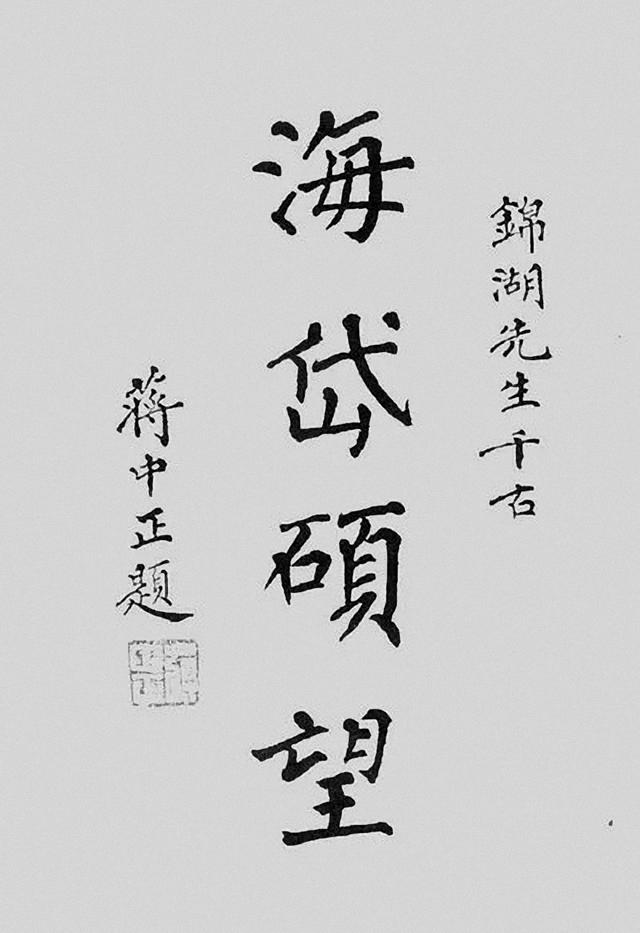 錦湖先生千古
海岱碩望
蔣中正題